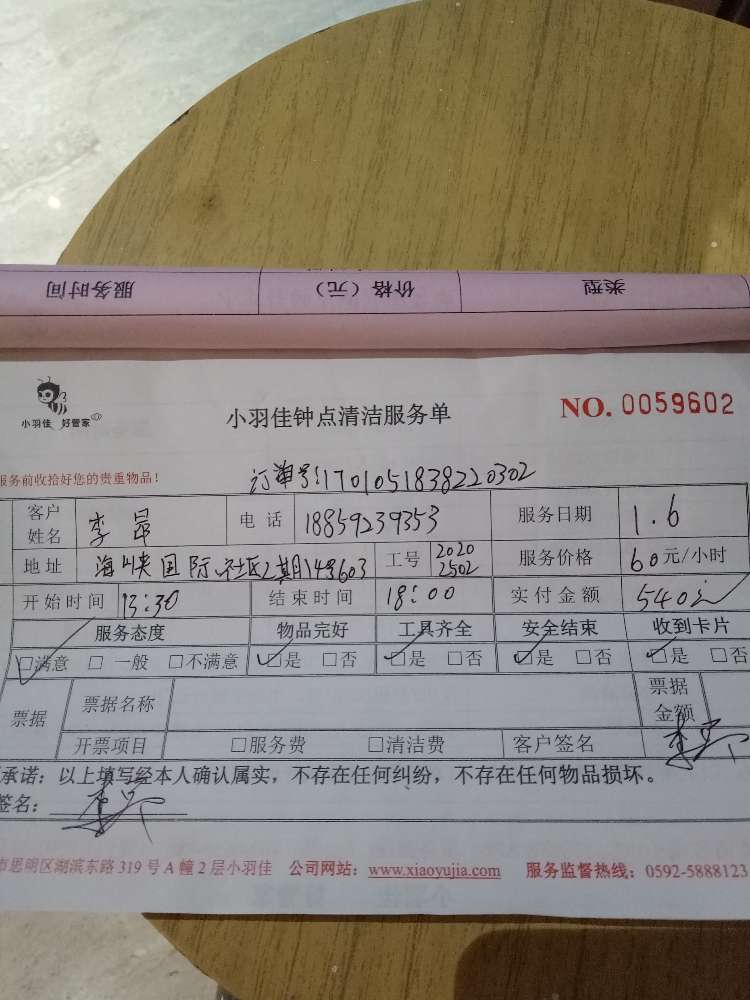 服务时间 价格（元） 类型
小羽佳 好管家
小羽佳钟点清洁服务单 NO. 0059602
服务前收拾好您的贵重物品！ 订单号:1701051838220302
客户姓名 李昂 电话 18859239353 服务日期 1.6
地址 海峡国际社区2期14号603 工号 2020 2502 服务价格 60元/小时
开始时间 13:30 结束时间 18:00 实付金额 540元
服务态度 物品完好 工具齐全 安全结束 收到卡片
☑满意 □ 一般 □不满意 ☑是 □否 ☑是 □否 ☑是 □否 ☑是 □否
票据 票据名称 票据金额
开票项目 □服务费 □清洁费 客户签名
承诺：以上填写经本人确认属实，不存在任何纠纷，不存在任何物品损坏。
签名：
市思明区湖滨东路 319 号 A 幢 2 层小羽佳 公司网站：www.xiaoyujia.com 服务监督热线：0592-5888123